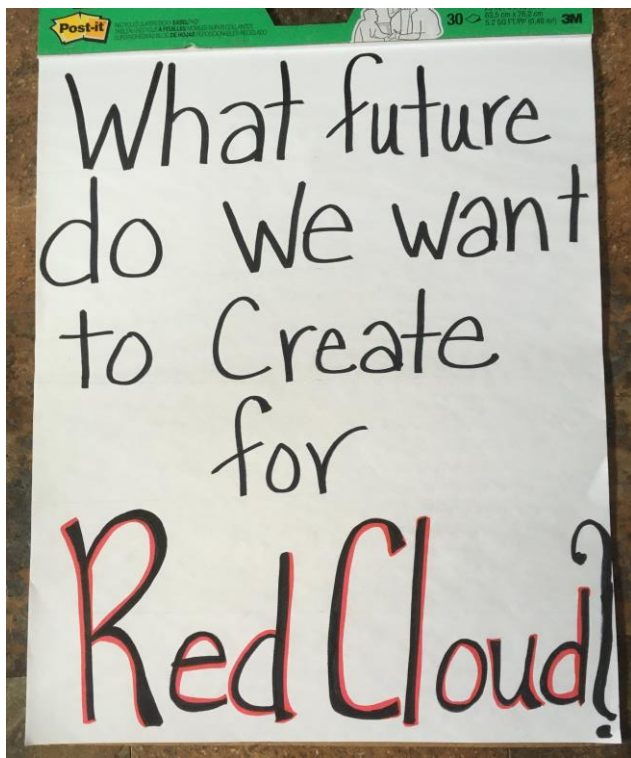 Post-it
30
63,5 cm x 76,2 cm
3M
What future
do We want
to Create
for
Red Cloud?